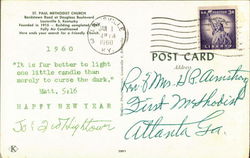 ST. PAUL METHODIST CHURCH
Bardstown Road at Douglass Boulevard
Louisville 5, Kentucky
Founded in 1915 - Building completed
Fully Air Conditioned
Here ends your search for a Friendly Church
1960
"It is far better to light
one little candle than
merely to curse the dark."
Matt. 5:16
HAPPY NEW YEAR
Jo & Fred Hightower
K
JAN 1
1960
KY.
POST CARD
3¢
LIBERTY
Rev & Mrs H P Armstrong
First Methodist
Atlanta Ga.